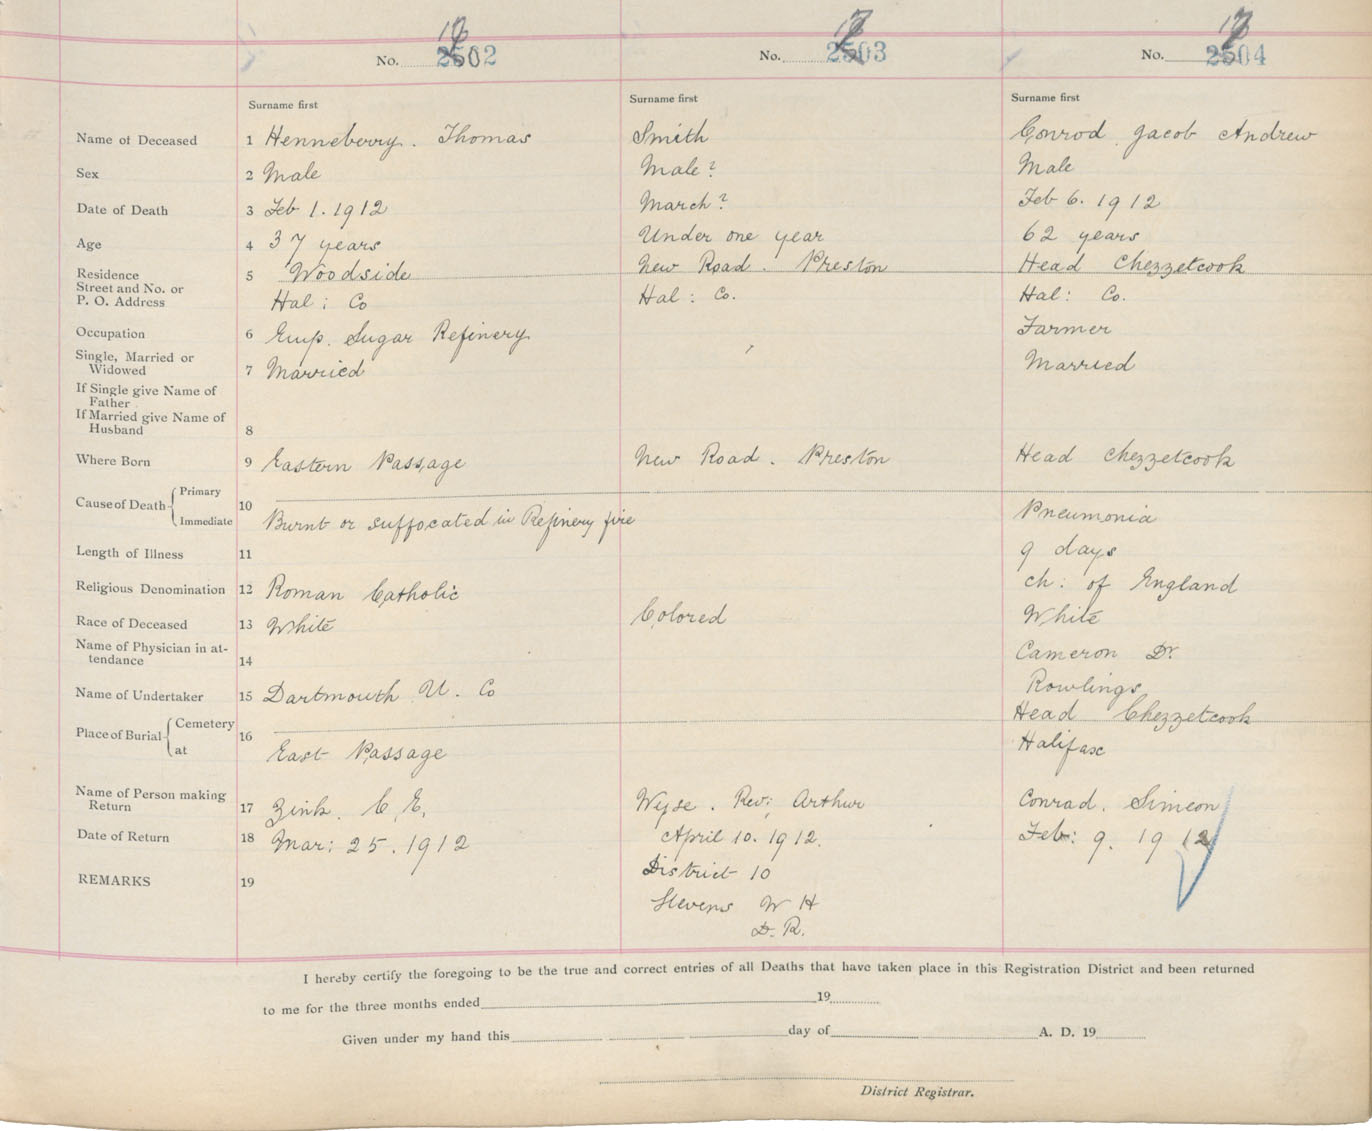 No. 2502
No. 2503
No. 2504
Surname first
Surname first
Surname first
Name of Deceased 1 Henneberry. Thomas Smith Conrod Jacob Andrew
Sex 2 Male Male? Male
Date of Death 3 Feb 1. 1912 March? Feb 6. 1912
Age 4 37 years Under one year 62 years
Residence 5 Woodside New Road. Preston Head Chezzetcook
Street and No. or
P. O. Address Hal: Co Hal: Co. Hal: Co.
Occupation 6 Emp. Sugar Refinery Farmer
Single, Married or
Widowed 7 Married Married
If Single give Name of
Father
If Married give Name of
Husband 8
Where Born 9 Eastern Passage New Road. Preston Head Chezzetcook
Cause of Death Primary 10
Immediate Burnt or suffocated in Refinery fire Pneumonia
Length of Illness 11 9 days
Religious Denomination 12 Roman Catholic Ch: of England
Race of Deceased 13 White Colored White
Name of Physician in at-
tendance 14 Cameron Dr.
Name of Undertaker 15 Dartmouth U. Co Rowlings
Place of Burial Cemetery 16 Head Chezzetcook
at East Passage Halifax
Name of Person making
Return 17 Zink. C. E. Wyse. Rev: Arthur Conrad. Simeon
Date of Return 18 Mar: 25. 1912 April 10. 1912. Feb: 9. 1912
REMARKS 19 District 10
Stevens W H
D. R.
I hereby certify the foregoing to be the true and correct entries of all Deaths that have taken place in this Registration District and been returned
to me for the three months ended 19
Given under my hand this day of A. D. 19
District Registrar.